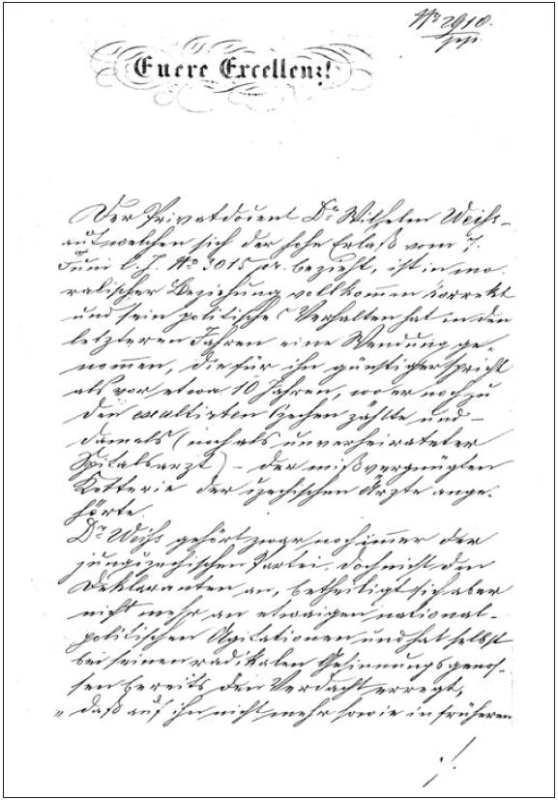 No 2910.
Euere Excellenz!
Der Privatdocent Dr. Wilhelm Weiß –
auf welchen sich der hohe Erlaß vom 7.
Juni l. J. No 3015 pr. bezieht, ist in mo-
ralischer Beziehung vollkommen korrekt
und sein politisches Verhalten hat in den
letzteren Jahren eine Wendung ge-
nommen, die für ihn günstiger spricht
als vor etwa 10 Jahren, wo er noch zu
den exaltirten Czechen zählte und –
damals (noch als unverheirateter
Spitalsarzt) – der mißvergnügten
Kotterie der czechischen Ärzte ange-
hörte.
Dr. Weiß gehört zwar noch immer der
jungczechischen Partei, doch nicht den
Deklaranten an, betheiligt sich aber
nicht mehr an etwaigen national-
politischen Agitationen und hat selbst
bei seinen radikalen Gesinnungsgenos-
sen bereits den Verdacht erregt,
„daß auf ihn nicht mehr sowie in früheren
./.